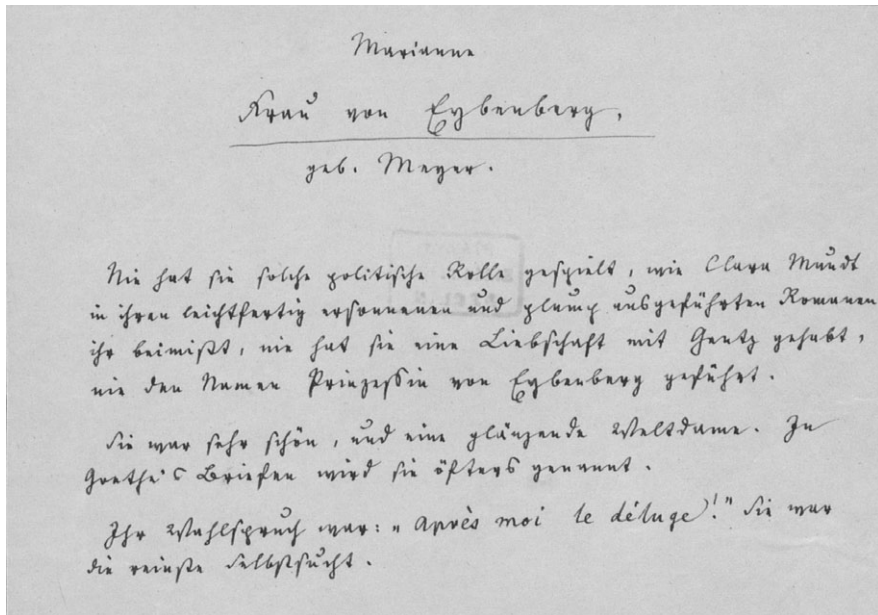 Marianne
Frau von Eybenberg,
geb. Meyer.
Nie hat sie solche politische Rolle gespielt, wie Clara Mundt
in ihren leichtfertig ersonnenen und plump ausgeführten Romanen
ihr beimißt, nie hat sie eine Liebschaft mit Gentz gehabt,
nie den Namen Prinzessin von Eybenberg geführt.
Sie war sehr schön, und eine glänzende Weltdame. In
Goethe's Briefen wird sie öfters genannt.
Ihr Wahlspruch war: „Après moi le déluge!" Sie war
die reinste Selbstsucht.